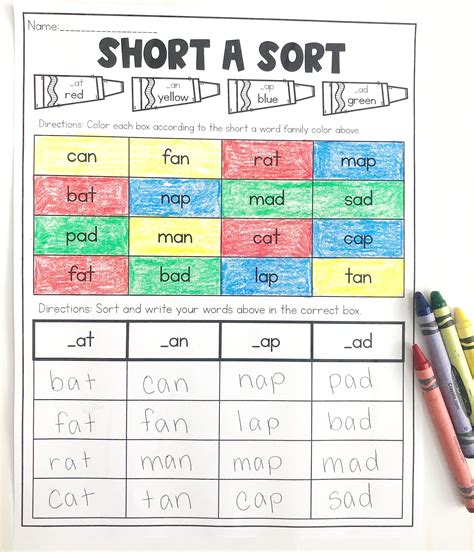 Name:________________
SHORT A SORT
_at red
_an yellow
_ap blue
_ad green
Directions: Color each box according to the short a word family color above.
can fan rat map
bat nap mad sad
pad man cat cap
fat bad lap tan
Directions: Sort and write your words above in the correct box.
_at _an _ap _ad
bat can nap pad
fat fan lap bad
rat man map mad
cat tan cap sad